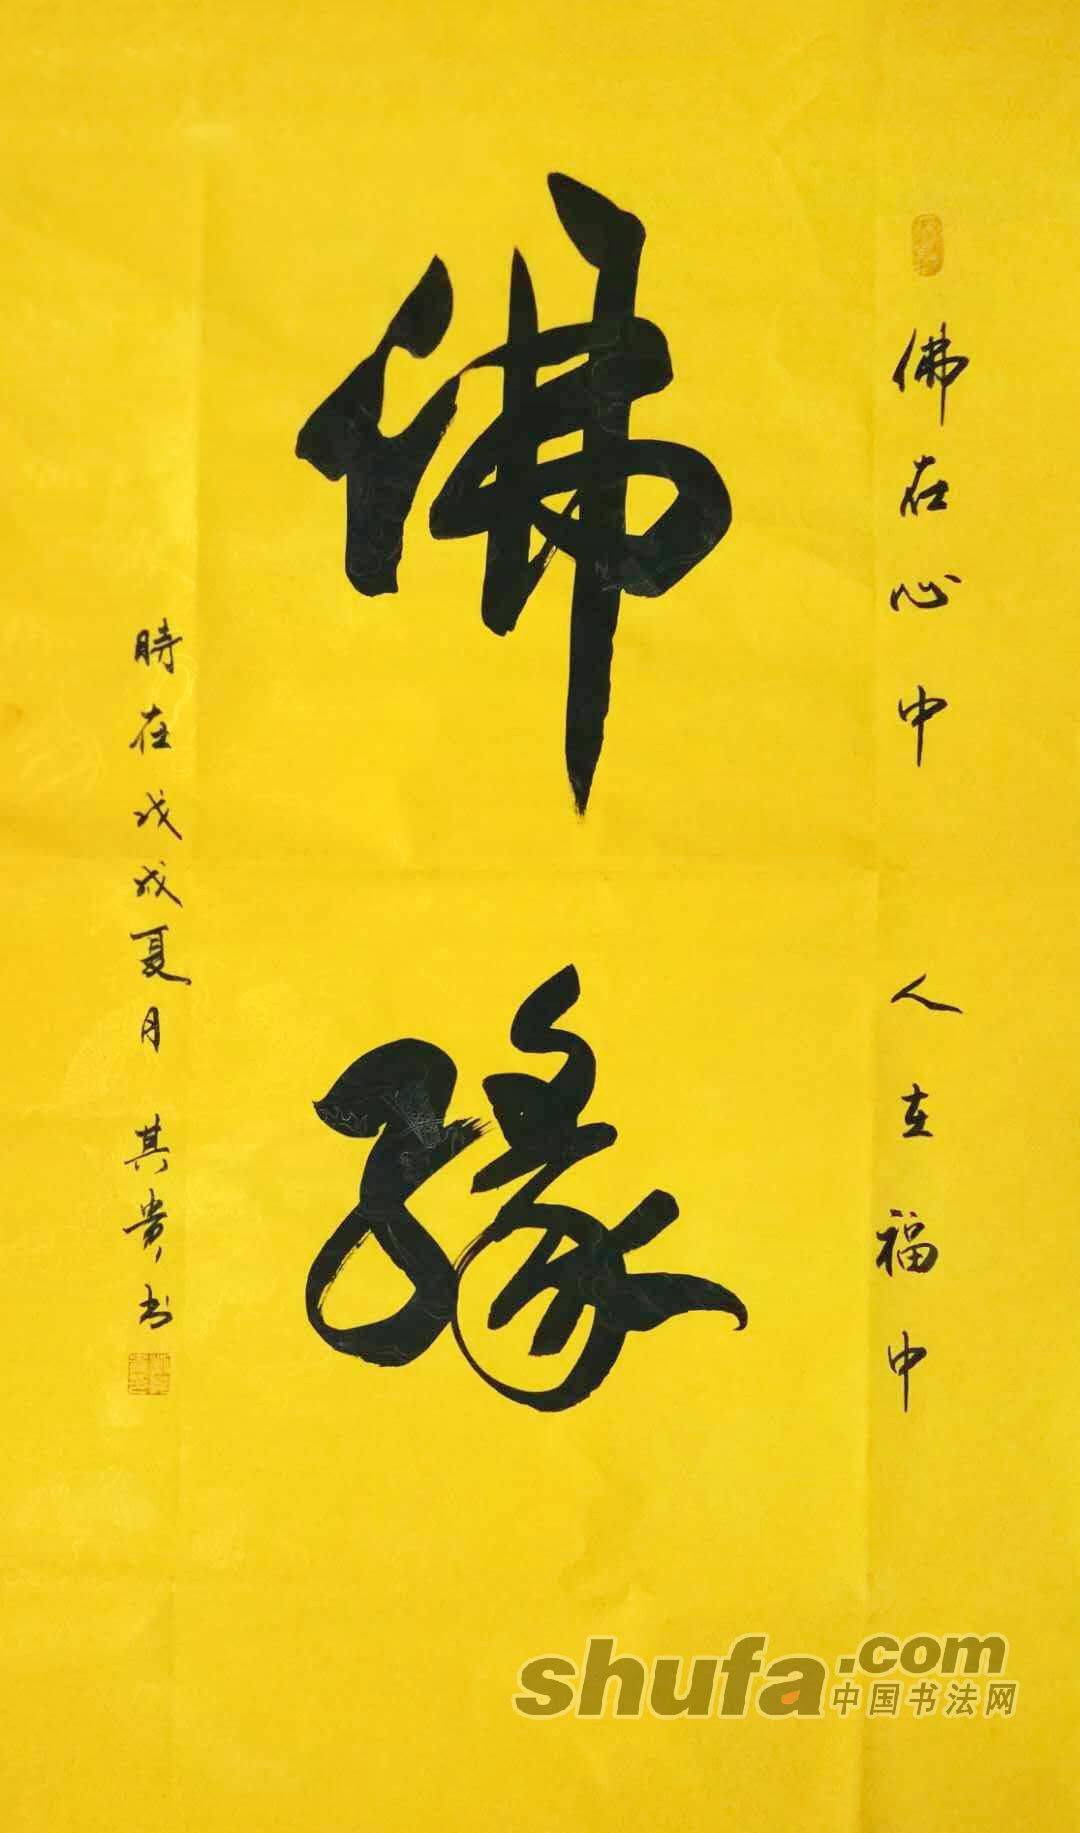 佛在心中 人在福中
佛缘
時在戊戌夏月 其貴书
shufa.com
中国书法网